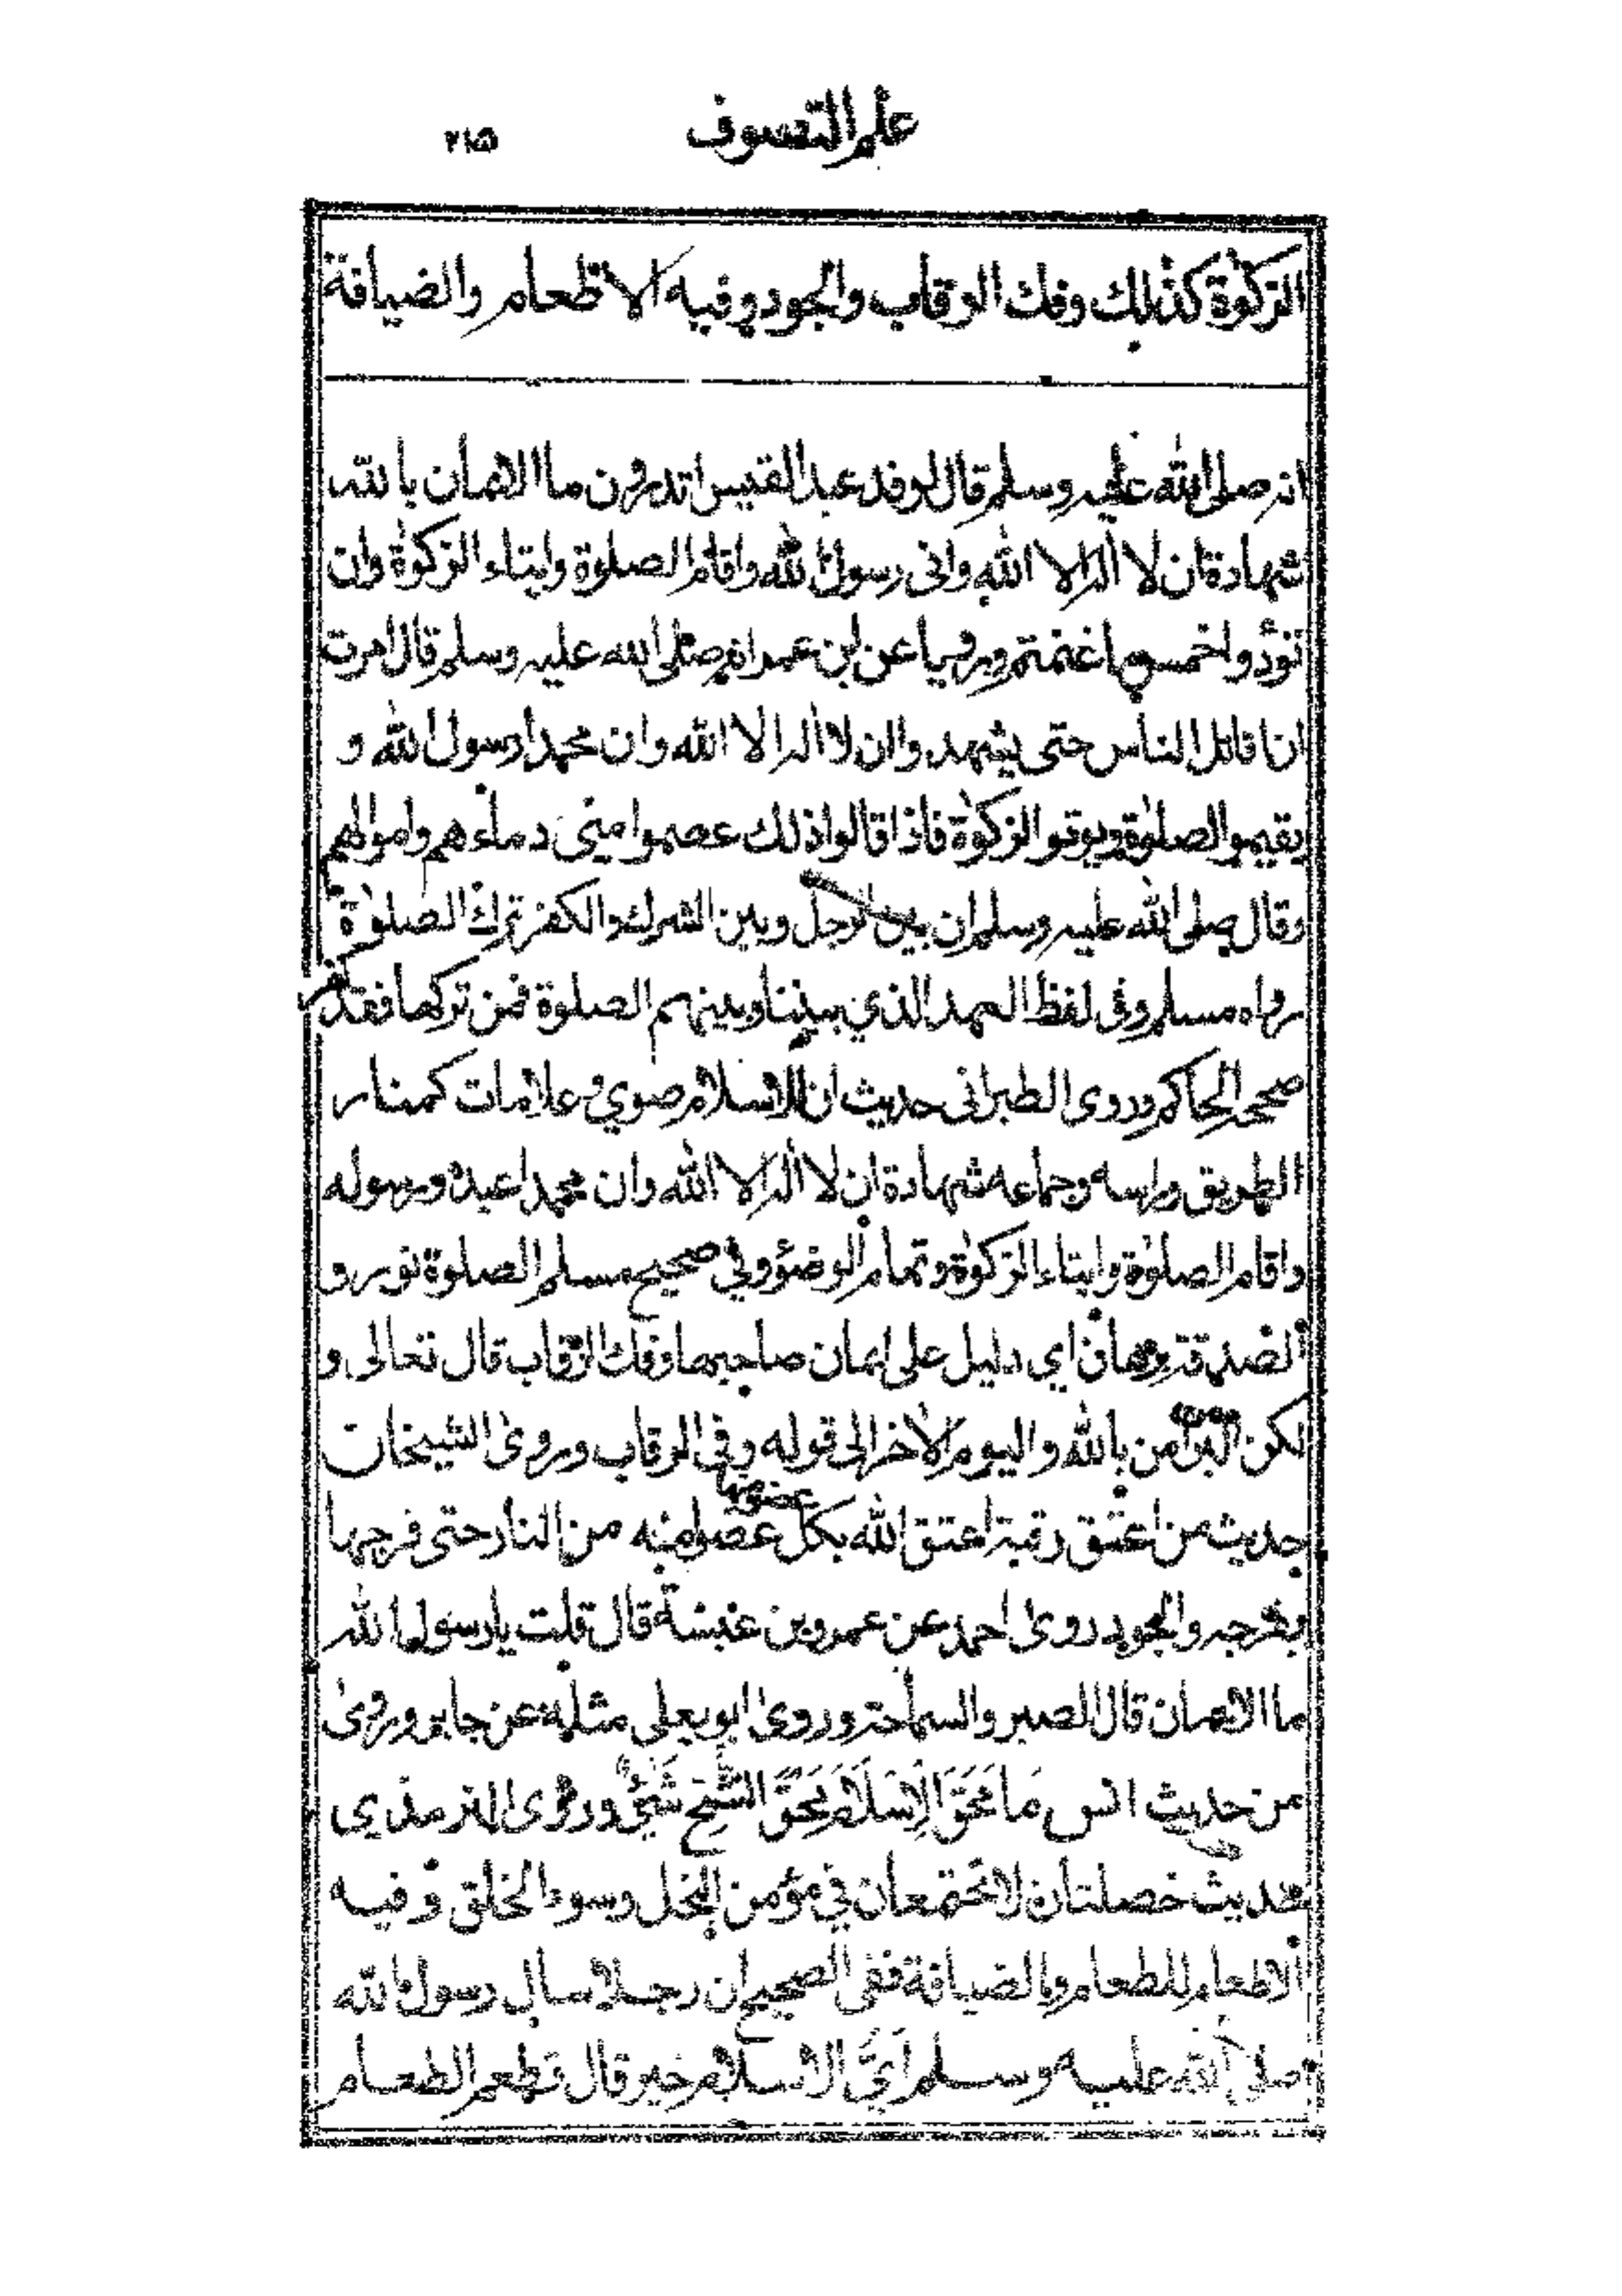 علم التصوف ٢١٥
الزكوة كذلك وفك الرقاب والجود وفيه الاطعام والضيافة
انه صلى الله عليه وسلم قال لوفد عبد القيس اتدرون ما الايمان بالله
شهادة ان لا اله الا الله وانى رسول الله واقام الصلوة وايتاء الزكوة وان
تؤدوا خمس ما غنمتم ورويا عن ابن عمر انه صلى الله عليه وسلم قال امرت
ان اقاتل الناس حتى يشهدوا ان لا اله الا الله وان محمدا رسول الله و
يقيموا الصلوة ويوتوا الزكوة فاذا قالوا ذلك عصموا منى دماءهم واموالهم
وقال صلى الله عليه وسلم ان بين الرجل وبين الشرك والكفر ترك الصلوة
رواه مسلم وفى لفظ العهد الذي بيننا وبينهم الصلوة فمن تركها فقد كفر
صححه الحاكم وروى الطبرانى حديث ان للاسلام صوي وعلامات كمنار
الطريق وراسه وجماعه شهادة ان لا اله الا الله وان محمدا عبده ورسوله
واقام الصلوة وايتاء الزكوة وتمام الوضؤ وفي صحيح مسلم الصلوة نور و
الصدقة برهان اي دليل على ايمان صاحبها وفك الرقاب قال تعالى و
لكن البر من امن بالله واليوم الاخر الى قوله وفى الرقاب وروى الشيخان
حديث من اعتق رقبة اعتق الله بكل عضو منها عضوا منه من النار حتى فرجها
بفرجه والجود روى احمد عن عمرو بن عبسة قال قلت يا رسول الله
ما الايمان قال الصبر والسماحة وروى ابو يعلى مثله عن جابر وروى
من حديث انس مَا مَحَقَ الْاِسْلَامَ مَحْقَ الشُّحِّ شَيْءٌ وروى الترمذي
حديث خصلتان لا تجتمعان في مؤمن البخل وسوء الخلق وفيه
الاطعام للطعام والضيافة ففى الصحيح ان رجلا سال رسول الله
صلى الله عليه وسلم اَيُّ الاسلام خير قال تطعم الطعام